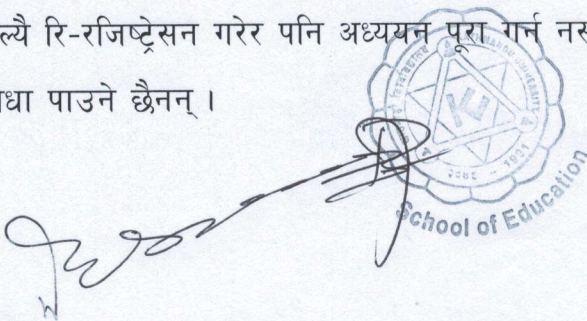 ल्यै रि-रजिष्ट्रेसन गरेर पनि अध्ययन पूरा गर्न नस
धा पाउने छैनन् ।
KU
1991
School of Education